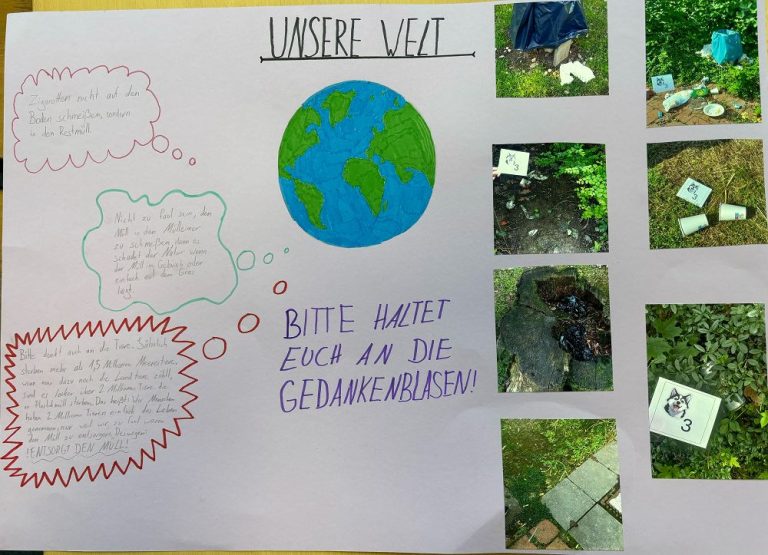 UNSERE WELT
Zigaretten nicht auf den
Boden schmeißen, sondern
in den Restmüll.
Nicht zu faul sein, den
Müll in den Mülleimer
zu schmeißen, denn es
schadet der Natur wenn
der Müll im Gebüsch oder
einfach auf dem Gras
liegt.
Bitte denkt auch an die Tiere. Jährlich
sterben mehr als 1,5 Millionen Meerestiere,
wenn man dazu noch die Landtiere zählt,
sind es locker über 2 Millionen Tiere die
in Plastikmüll sterben. Das heißt: Wir Menschen
haben 2 Millionen Tieren einfach das Leben
genommen, nur weil wir zu faul waren
den Müll zu entsorgen. Deswegen:
!ENTSORGT DEN MÜLL!
BITTE HALTET
EUCH AN DIE
GEDANKENBLASEN!
3
3
3
3